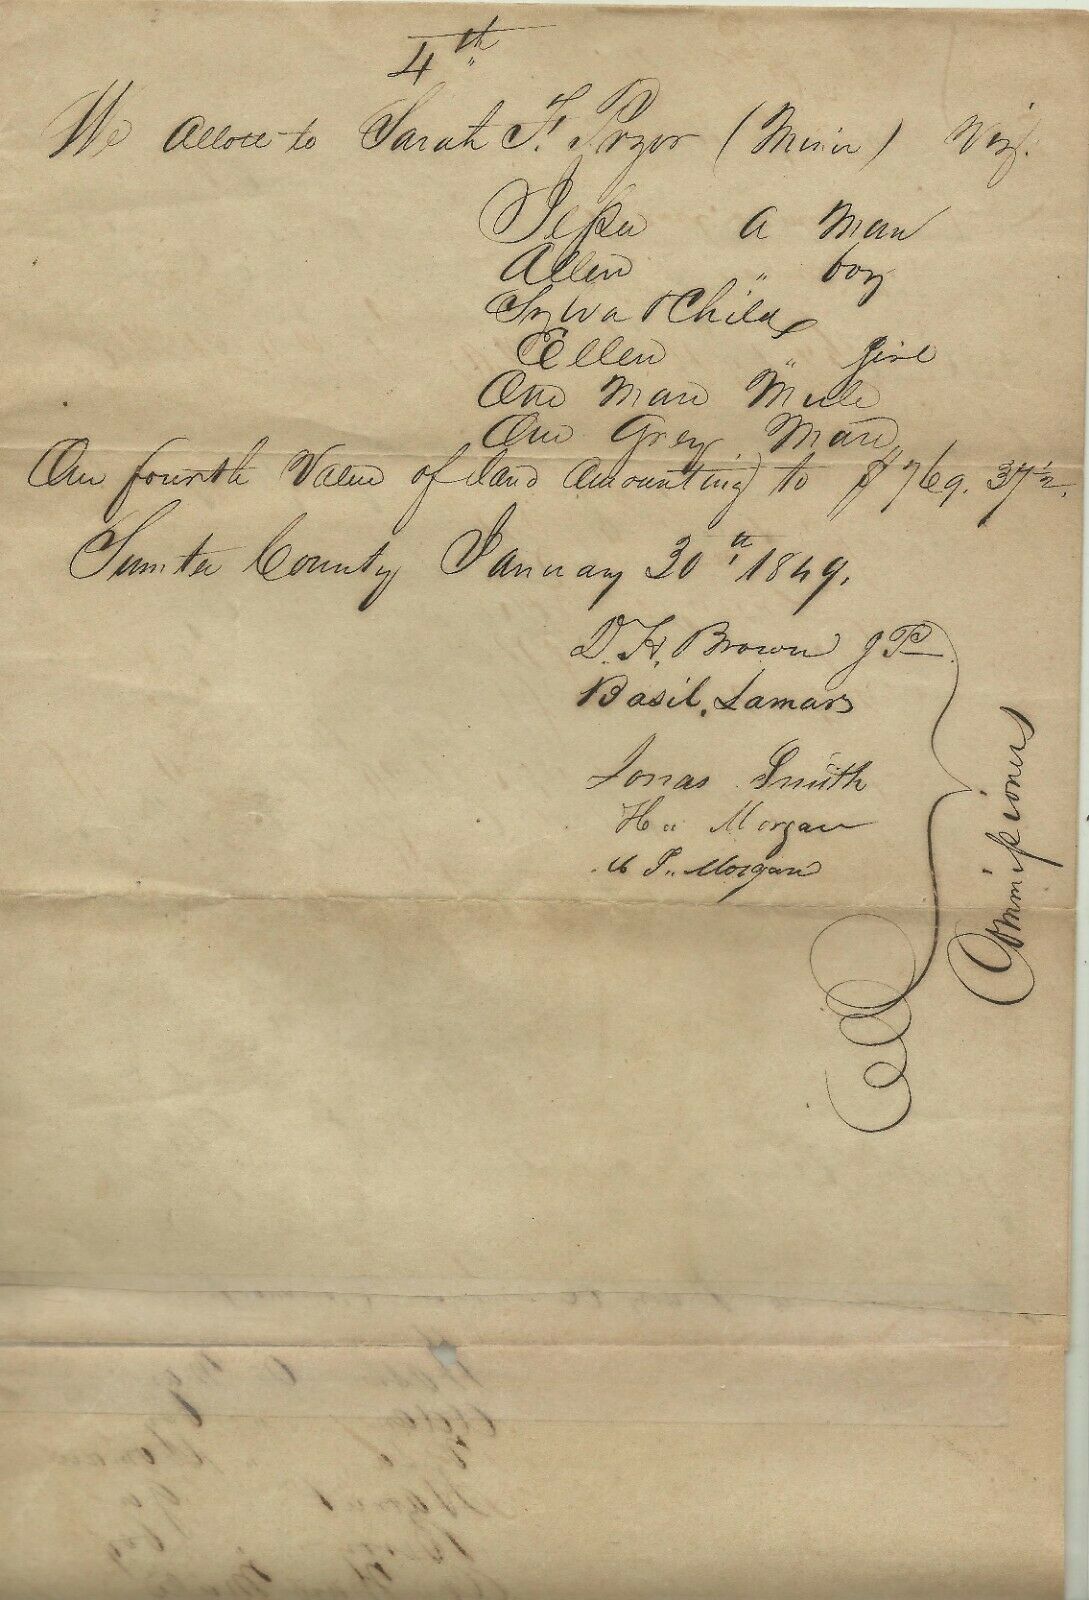 4th
We Allott to Sarah F. Pryor (Minor) Viz.
Jesse a Man
Allen " boy
Sylva & Child
Ellen " girl
One Mare Mule
One Grey Mare
One fourth Value of land Amounting to $769.37½.
Sumter County January 30th 1849.
D. H. Brown J P
Basil Lamar
Jonas Smith
H Morgan
Morgan
Commissioners